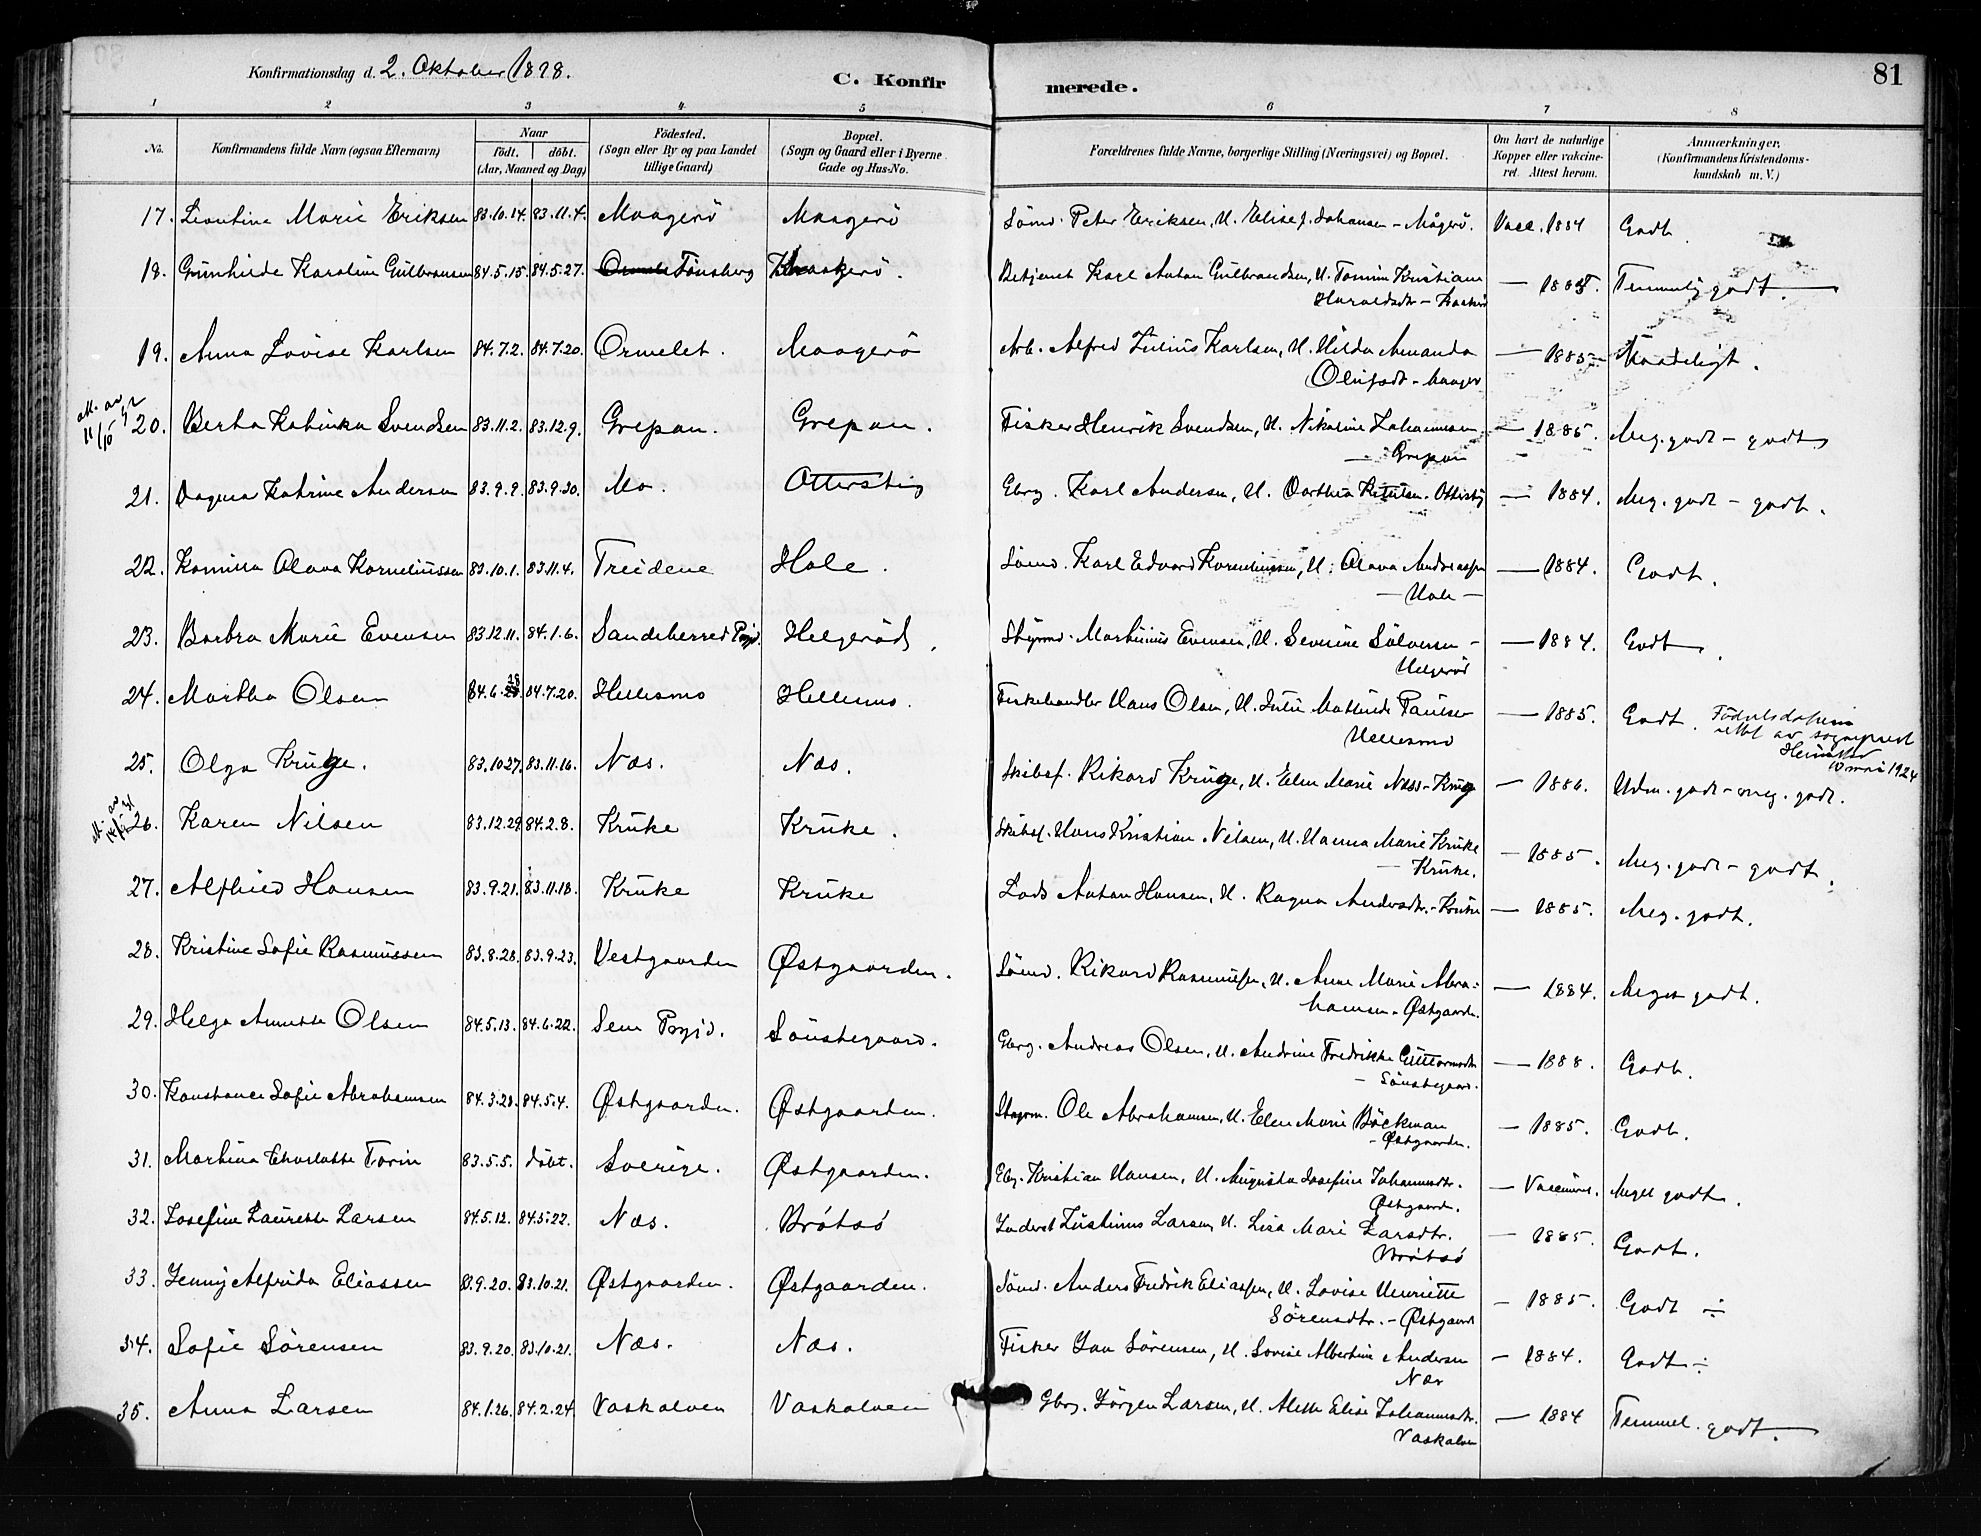 Konfirmationsdag d. 2. Oktober 1898.
C. Konfirmerede.
81
1 2 3 4 5 6 7 8
No. Konfirmandens fulde Navn (ogsaa Efternavn) Naar födt. döbt. (Aar, Maaned og Dag) Födested. (Sogn eller By og paa Landet tillige Gaard) Bopæl. (Sogn og Gaard eller i Byerne Gade og Hus-No. Forældrenes fulde Navne, borgerlige Stilling (Næringsvei) og Bopæl. Om havt de naturlige Kopper eller vakcineret. Attest herom. Anmærkninger. (Konfirmandens Kristendomskundskab m. V.)
17. Leontine Marie Eriksen 83.10.14. 83.11.4. Maagerö Maagerö Sömd. Peter Eriksen, H. Elise f. Johansen - Mågerö. Vacc. 1884 Godt.
18. Gunhilde Karoline Gulbransen 84.5.15. 84.5.27. Tönsberg Kaakerö. Betjent Karl Anton Gulbrandsen, H. Tomine Kristiane
Haraldsdt - Kaakerö — Temmelig godt.
19. Anna Lovise Karlsen 84.7.2. 84.7.20. Ormelet. Maagerö Arb. Alfred Julius Karlsen, H. Hilda Amanda
Olufsdt - Maager — 1885 Maadeligt.
20. Berta Katinka Svendsen 83.11.2. 83.12.9. Grepan. Grepan. Fisker Henrik Svendsen, H. Nikoline Johannesen
— Grepan — 1885. Meg. godt - godt
21. Dagma Katrine Andersen 83.9.9. 83.9.30. Mo. Otterstig Gbrg. Karl Andersen, H. Dorthea Ottersti — 1884. Meg. godt - godt.
22. Kamilla Olava Korneliussen 83.10.1. 83.11.4. Treidene Hole. Sömd. Karl Edvard Korneliussen, H. Olava Andreassen
— Hole — — 1884. Godt.
23. Barbra Marie Evensen 83.12.11. 84.1.6. Sandeherred Pgjd. Helgeröd. Styrmd. Martinius Evensen, H. Severine Sölversen -
Helgeröd — 1884. Godt.
24. Martha Olsen 84.6. 84.7.20. Hellesmo Hellesmo. Fiskehandler Hans Olsen, H. Julie Mathilde Paulsen
Hellesmo — 1885. Godt. Födselsdatoen
rettet av sogneprest
10 mai 1924
25. Olga Kruge. 83.10.27. 83.11.16. Næs. Næs. Skibsf. Rikard Kruge, H. Elen Marie Næss - Kruge — 1886. Udm. godt - meg. godt.
26. Karen Nilsen 83.12.29. 84.2.8. Kruke Kruke. Skibsf. Hans Kristian Nilsen, H. Hanna Marie Kruke
— Kruke. — 1885. Meg. godt - godt.
27. Alfhild Hansen 83.9.21. 83.11.18. Kruke Kruke Lods Anton Hansen, H. Ragna Andersdtr. - Kruke — 1885. Meg. godt.
28. Kristine Sofie Rasmussen 83.8.28. 83.9.23. Vestgaarden Østgaarden. Sömd. Rikard Rasmussen, H. Anne Marie Abra-
hamsen - Østgaarden. — 1884. Meget godt.
29. Helga Annette Olsen 84.5.13. 84.6.22. Sem Pgjd. Sönstegaard. Gbrg. Andreas Olsen, H. Andrine Fredrikke Guttormsdtr
— Sönstegaard. — 1888. Godt.
30. Konstance Sofie Abrahamsen 84.3.28. 84.5.4. Østgaarden. Østgaarden. Styrm. Ole Abrahamsen, H. Elen Marie Böckman
- Østgaarden. — 1885. Godt.
31. Martina Charlotte Torin 83.5.5. döbt. Sverige. Østgaarden. Gbrg. Kristian Hansen, H. Augusta Josefine Johannesdtr.
Østgaarden. — Vaccineret. Meget godt.
32. Josefine Laurette Larsen 84.5.12. 84.5.22. Næs. Brötsö Inderst Justinus Larsen, H. Lisa Marie Larsdtr.
Brötsö — 1885. Godt.
33. Jenny Alfrida Eliassen 83.9.20. 83.10.21. Østgaarden. Østgaarden. Sömd. Anders Fredrik Eliassen, H. Lovise Henriette
Sörensdtr. - Østgaard — 1885. Godt ÷
34. Sofie Sörensen 83.9.20. 83.10.21. Næs. Næs. Fisker Jan Sörensen, H. Lovise Albertine Andersen
Næs — 1884. Godt ÷
35. Anna Larsen 84.1.26. 84.2.24 Vaskalven Vaskalven Gbrg. Jörgen Larsen, H. Alette Elise Johannesdtr.
Vaskalven — 1884 Temmel. godt.